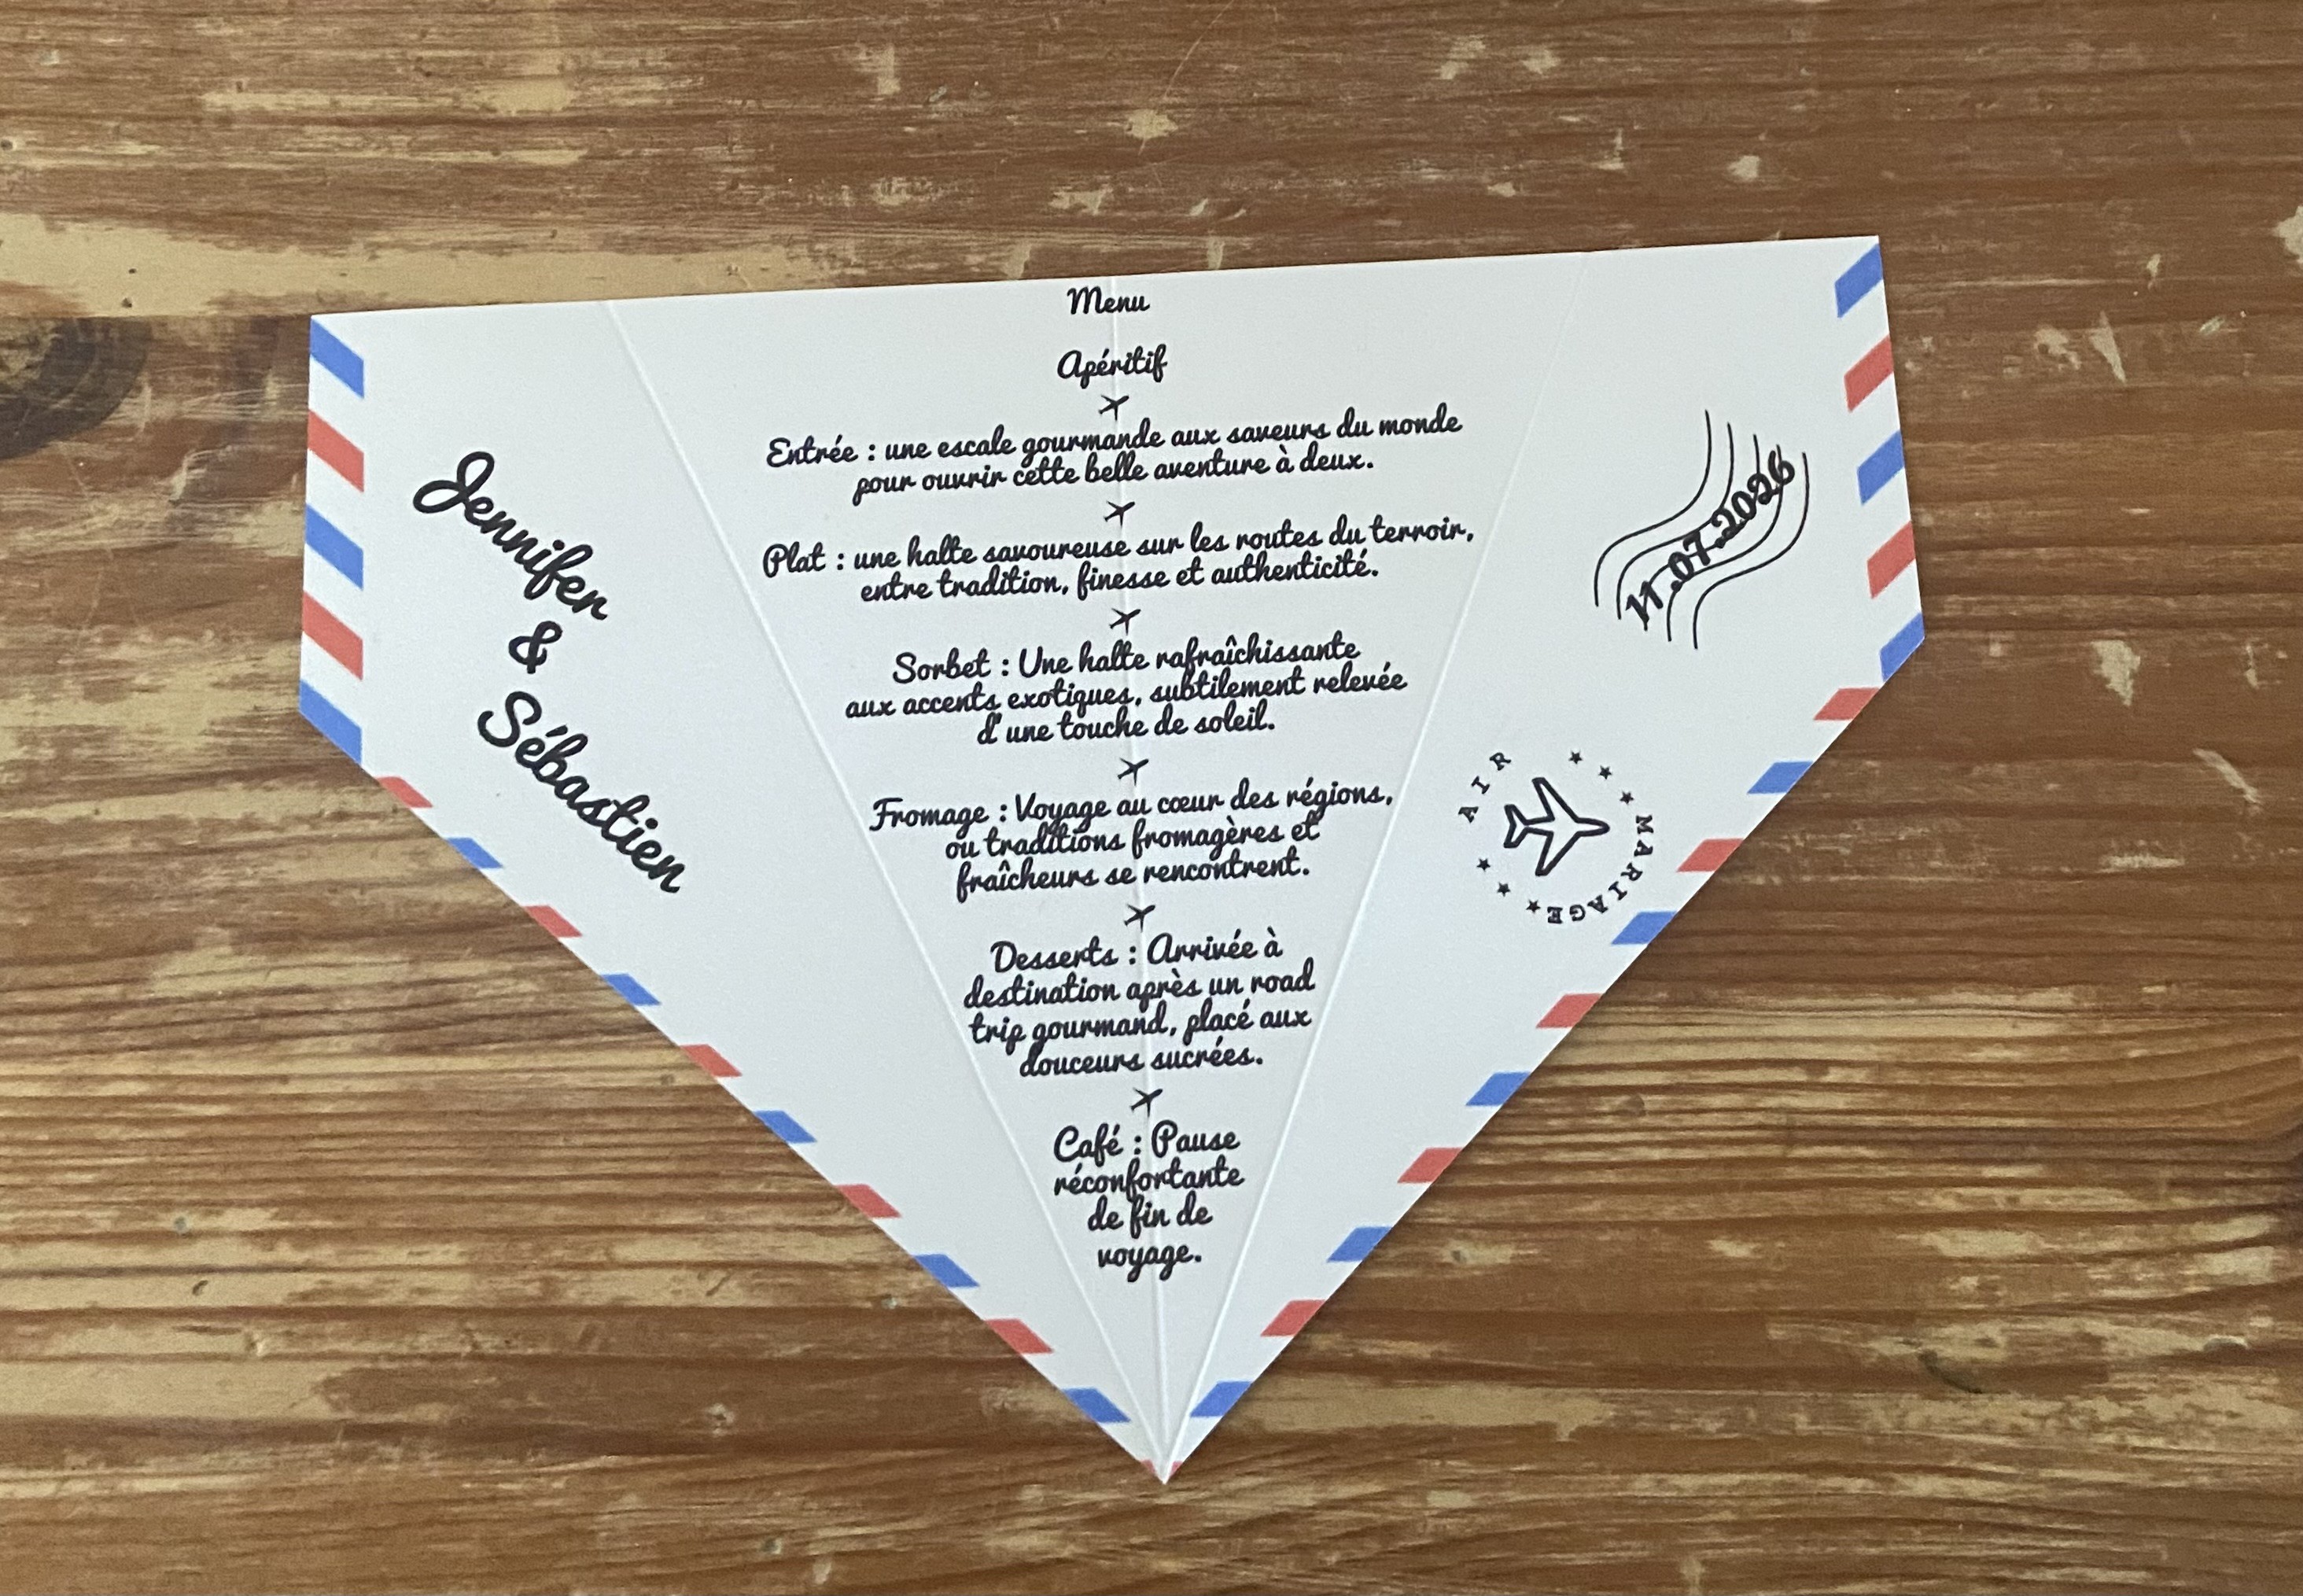 Menu
Apéritif
Entrée : une escale gourmande aux saveurs du monde
pour ouvrir cette belle aventure à deux.
Plat : une halte savoureuse sur les routes du terroir,
entre tradition, finesse et authenticité.
Sorbet : Une halte rafraîchissante
aux accents exotiques, subtilement relevée
d'une touche de soleil.
Fromage : Voyage au cœur des régions,
ou traditions fromagères et
fraîcheurs se rencontrent.
Desserts : Arrivée à
destination après un road
trip gourmand, placé aux
douceurs sucrées.
Café : Pause
réconfortante
de fin de
voyage.
Jennifer
&
Sébastien
11.07.2026
AIR
MARIAGE